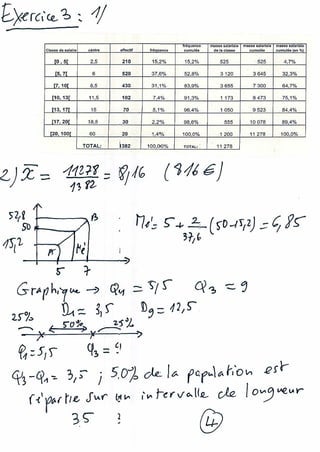 Exercice 3 : 1/
Classe de salaire centre effectif fréquence fréquence cumulée masse salariale de la classe masse salariale cumulée masse salariale cumulée (en %)
[0 , 5[ 2,5 210 15,2% 15,2% 525 525 4,7%
[5, 7[ 6 520 37,6% 52,8% 3 120 3 645 32,3%
[7, 10[ 8,5 430 31,1% 83,9% 3 655 7 300 64,7%
[10, 13[ 11,5 102 7,4% 91,3% 1 173 8 473 75,1%
[13, 17[ 15 70 5,1% 96,4% 1 050 9 523 84,4%
[17, 20[ 18,5 30 2,2% 98,6% 555 10 078 89,4%
[20, 100[ 60 20 1,4% 100,0% 1 200 11 278 100,0%
TOTAL: 1382 100,00% TOTAL: 11 278
2) X̄ = 11278/1382 = 8,16 (816€)
52,8 B
50 Mé = 5 + 2/37,6 (50-15,2) = 6,85
15,2 A Mé
5 7
Graphique → Q1 = 5,5 Q3 = 9
D1 = 3,5 D9 = 12,5
25% 50% 25%
Q1 = 5,5 Q3 = 9
Q3-Q1 = 3,5 ; 50% de la population est
répartie sur un intervalle de longueur
3,5 !
4